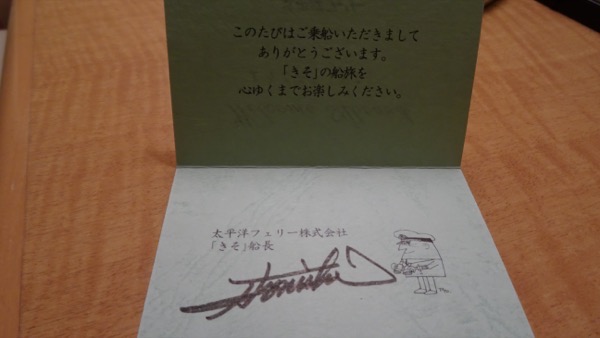 このたびはご乗船いただきまして
ありがとうございます。
「きそ」の船旅を
心ゆくまでお楽しみください。
太平洋フェリー株式会社
「きそ」船長